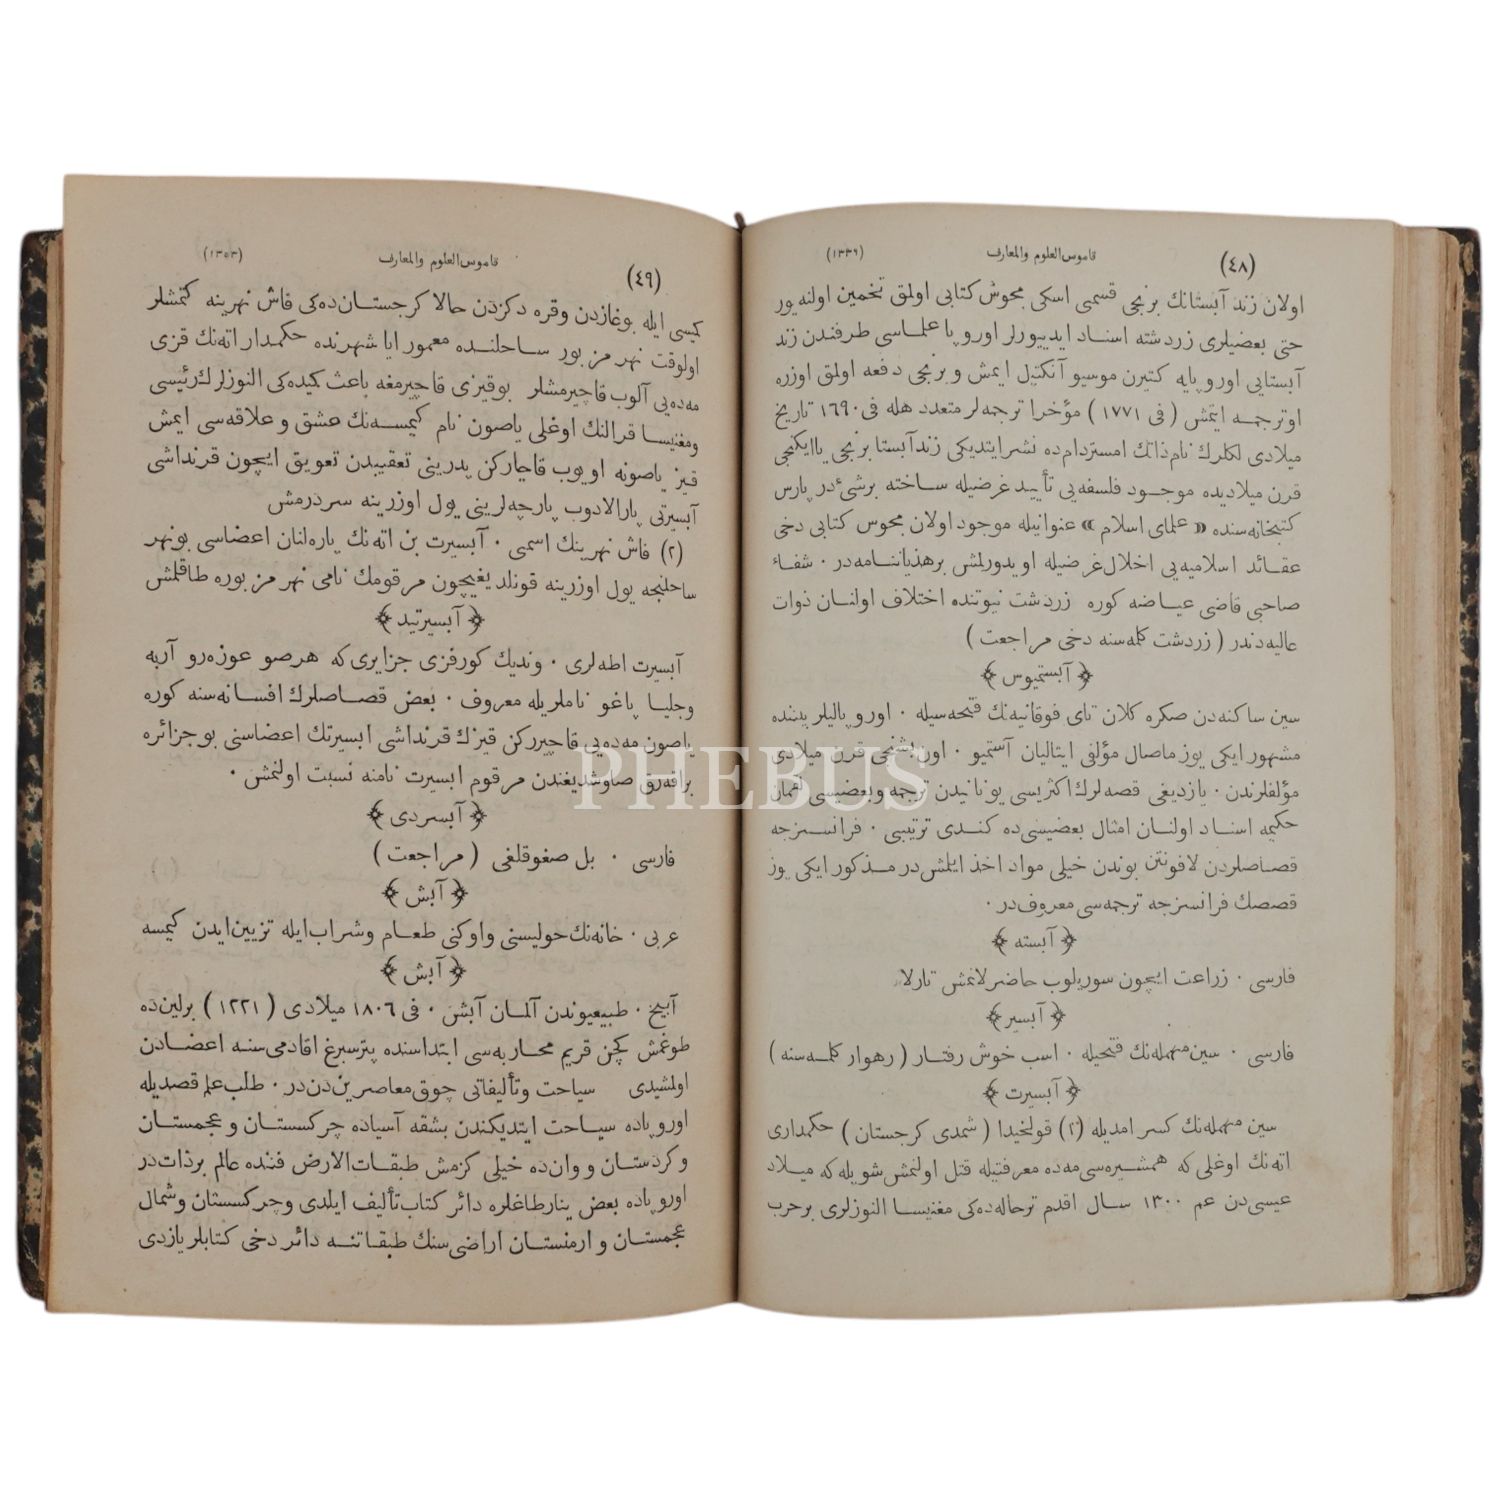 (٤٨) قاموس العلوم والمعارف (١٣٣٦)
اولان زند آبستانك برنجی قسمی اسكی مجوش كتابی اولمق تخمین اولنه یور
حتی بعضیلری زردشته اسناد ایدییورلر اوروپا علماسی طرفندن زند
آبستایی اوروپایه كتیرن موسیو آنكتیل ایمش و برنجی دفعه اولمق اوزره
او ترجمه ایتمش (فی ١٧٧١) مؤخرا ترجمه لر متعدد هله فی ١٦٩٠ تاریخ
میلادی لكلرك نام ذاتك امستردام ده نشر ایتدیكی زند آبستا برنجی یا ایكنجی
قرن میلادیده موجود فلسفه یی تأیید غرضیله ساخته برشیٔ در پارس
كتبخانه سنده « علمای اسلام » عنوانیله موجود اولان مجوس كتابی دخی
عقائد اسلامیه یی اخلال غرضیله اویدورلمش برهذیاننامه در ٠ شفاء
صاحبی قاضی عیاضه كوره زردشت نبوتنده اختلاف اولنان ذوات
عالیه دندر ( زردشت كلمه سنه دخی مراجعت )
﴿ آبستمیوس ﴾
سین ساكنه دن صكره كلان تای فوقانیه نك فتحه سیله ٠ اوروپالیلر بیننده
مشهور ایكی یوز ماصال مؤلفی ایتالیان آستمیو ٠ اون بشنجی قرن میلادی
مؤلفلرندن ٠ یازدیغی قصه لرك اكثریسی یونانیدن ترجمه و بعضیسی لقمان
حكیمه اسناد اولنان امثال بعضیسی ده كندی ترتیبی ٠ فرانسزجه
قصاصلردن لافونتن بوندن خیلی مواد اخذ ایلمش در مذكور ایكی یوز
قصصك فرانسزجه ترجمه سی معروف در ٠
﴿ آبسته ﴾
فارسی ٠ زراعت ایچون سوریلوب حاضرلانمش تارلا
﴿ آبسیر ﴾
فارسی ٠ سین مهمله نك فتحیله ٠ اسب خوش رفتار ( رهوار كلمه سنه )
﴿ آبسیرت ﴾
سین مهمله نك كسر امدیله (٢) قولخیدا ( شمدی كرجستان ) حكمداری
اته نك اوغلی كه همشیره سی مه ده معرفتیله قتل اولنمش شویله كه میلاد
عیسی دن عم ١٣٠٠ سال اقدم ترحاله ده كی مغنیسا النوزلری برحرب
(٤٩) قاموس العلوم والمعارف (١٣٥٣)
كمیسی ایله بوغازدن و قره دكزدن حالا كرجستان ده كی فاش نهرینه كتمشلر
اولوقت نهر مزبور ساحلنده معمور ایا شهرنده حكمدار اته نك قزی
مه ده یی آلوب قاچیرمشلر بوقیزی قاچیرمغه باعث كمیده كی النوزلرك رئیسی
ومغنیسا قرالنك اوغلی یاصون نام كیمسه نك عشق و علاقه سی ایمش
قیز یاصونه اویوب قاچاركن پدرینی تعقیبدن تعویق ایچون قرنداشی
آبسیرتی پارالادوب پارچه لرینی یول اوزرینه سردرمش
(٢) فاش نهرینك اسمی ٠ آبسیرت بن اته نك پاره لنان اعضاسی بونهر
ساحلنجه یول اوزرینه قونلدیغیچون مرقومك نامی نهر مزبوره طاقلمش
﴿ آبسیرتید ﴾
آبسیرت اطه لری ٠ وندیك كورفزی جزایری كه هرصو عوزه رو آربه
وجلیا پاغو ناملریله معروف ٠ بعض قصاصلرك افسانه سنه كوره
یاصون مه ده یی قاچیرركن قیزك قرنداشی ابسیرتك اعضاسنی بو جزائره
براقه رق صاوشدیغندن مرقوم ابسیرت نامنه نسبت اولنمش ٠
﴿ آبسردی ﴾
فارسی ٠ بل صغوقلغی ( مراجعت )
﴿ آبش ﴾
عربی ٠ خانه نك حولیسنی واوكنی طعام وشراب ایله تزیین ایدن كیمسه
﴿ آبش ﴾
آبیخ ٠ طبیعیوندن آلمان آبش ٠ فی ١٨٠٦ میلادی ( ١٢٢١ ) برلین ده
طوغمش كچن قریم محاربه سی ابتداسنده پترسبرغ اقادمی سنه اعضادن
اولمشیدی سیاحت و تألیفاتی چوق معاصرین دن در ٠ طلب علم قصدیله
اوروپاده سیاحت ایتدیكندن بشقه آسیاده چركسستان و عجمستان
و كردستان و وان ده خیلی كزمش طبقات الارض فننده عالم برذات در
اوروپاده بعض ینارطاغلره دائر كتاب تألیف ایلدی و چركسستان و شمال
عجمستان و ارمنستان اراضی سنك طبقاتنه دائر دخی كتابلر یازدی
PHEBUS